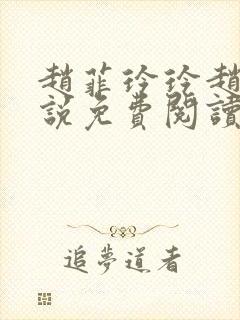 趙菲玲玲趙
說免費閱讀
追夢道者